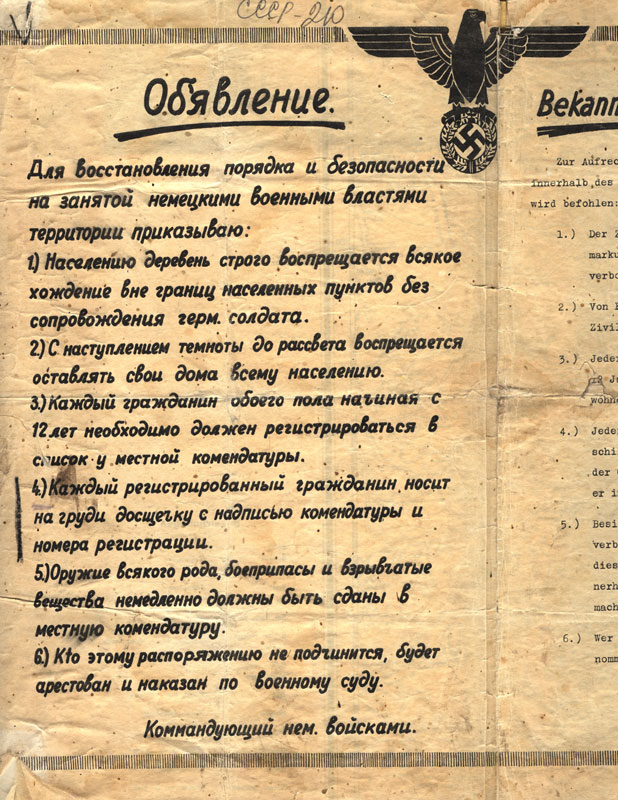 СССР-210
Объявление.
Для восстановления порядка и безопасности
на занятой немецкими военными властями
территории приказываю:
1.) Населению деревень строго воспрещается всякое
хождение вне границ населенных пунктов без
сопровождения герм. солдата.
2.) С наступлением темноты до рассвета воспрещается
оставлять свои дома всему населению.
3.) Каждый гражданин обоего пола начиная с
12 лет необходимо должен регистрироваться в
список у местной комендатуры.
4.) Каждый регистрированный гражданин носит
на груди досщечку с надписью комендатуры и
номера регистрации.
5.) Оружие всякого рода, боеприпасы и взрывчатые
вещества немедленно должны быть сданы в
местную комендатуру.
6.) Кto этому распоряжению не подчинится, будет
арестован и наказан по военному суду.
Коммандующий нем. войсками.
Bekann
Zur Aufrec
innerhalb des
wird befohlen:
1.) Der Z
marku
verbo
2.) Von E
Zivil
3.) Jeder
12 Je
wohne
4.) Jeder
schi
der
er i
5.) Besi
verb
dies
nerh
mach
6.) Wer
nomm